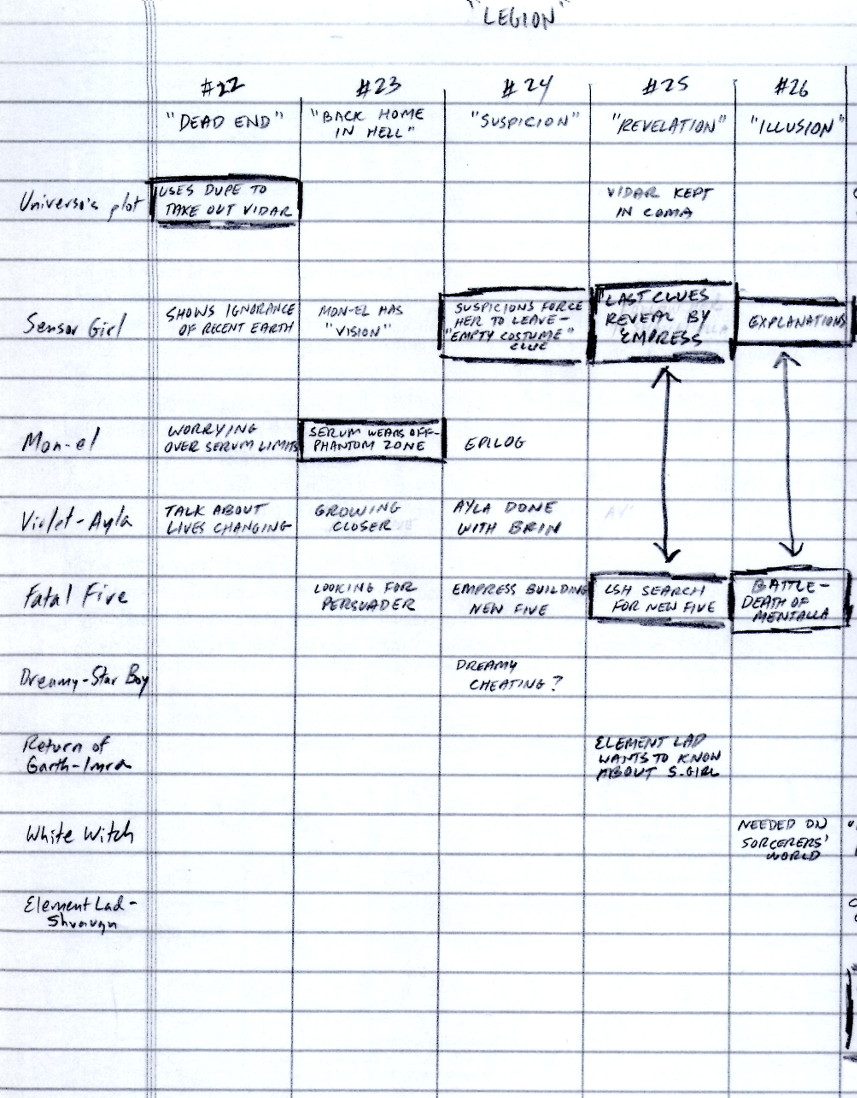 "LEGION"
#22 #23 #24 #25 #26
"DEAD END" "BACK HOME IN HELL" "SUSPICION" "REVELATION" "ILLUSION"
Universo's plot
USES DUPE TO
TAKE OUT VIDAR
VIDAR KEPT
IN COMA
Sensor Girl
SHOWS IGNORANCE
OF RECENT EARTH
MON-EL HAS
"VISION"
SUSPICIONS FORCE
HER TO LEAVE-
"EMPTY COSTUME"
CLUE
LAST CLUES
REVEAL BY
EMPRESS
EXPLANATIONS
Mon-el
WORRYING
OVER SERUM LIMITS
SERUM WEARS OFF-
PHANTOM ZONE
EPILOG
Violet-Ayla
TALK ABOUT
LIVES CHANGING
GROWING
CLOSER
AYLA DONE
WITH BRIN
Fatal Five
LOOKING FOR
PERSUADER
EMPRESS BUILDING
NEW FIVE
LSH SEARCH
FOR NEW FIVE
BATTLE-
DEATH OF
MENTALLA
Dreamy-Star Boy
DREAMY
CHEATING?
Return of
Garth-Imra
ELEMENT LAD
WANTS TO KNOW
ABOUT S.GIRL
White Witch
NEEDED ON
SORCERERS'
WORLD
Element Lad-
Shvaugn